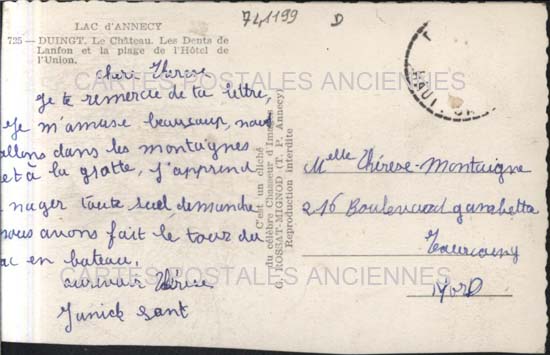 741199 D
LAC d'ANNECY
725 — DUINGT. Le Château. Les Dents de
Lanfon et la plage de l'Hôtel de
l'Union.
cheri Thérèse
Je te remercie de ta lettre,
Je m'amuse beaucoup, nous
allons dans les montagnes
et à la grotte, J'apprend
nager toute seul dimanche
nous avons fait le tour du
lac en bateau.
aurevoir Thérèse
Yanick Sant
C'est un cliché
du célèbre Chasseur d'Images
G. ROSSAT-MIGNOD (T. P. Annecy)
Reproduction interdite
Melle Thérèse-Montaigne
216 Boulevard gambetta
Tourcoing
Nord
CARTES POSTALES ANCIENNES
CARTES POSTALES ANCIENNES